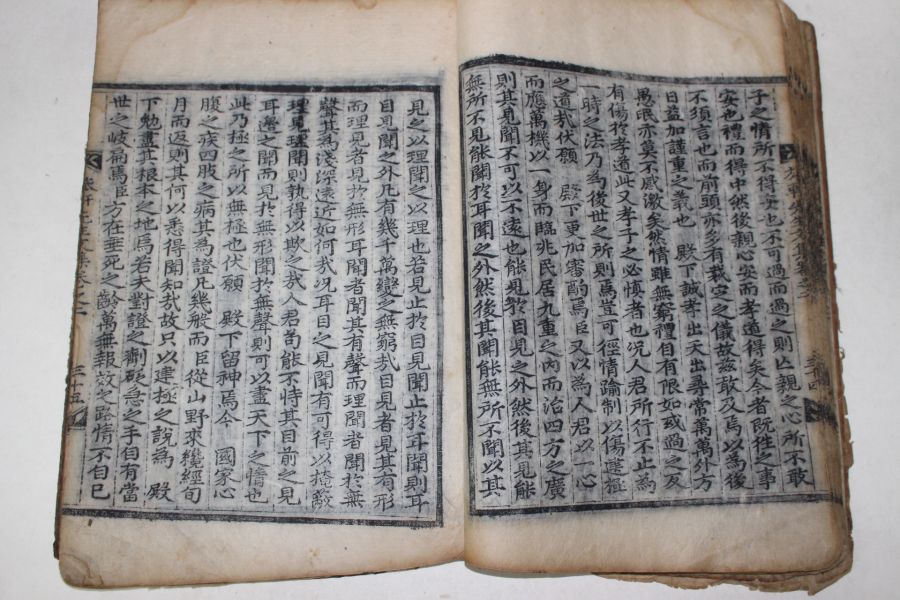 子之情所不得安也不可過而過之則亡親之心所不敢
安也禮而得中然後親心安而孝道得矣今者旣往之事
不須言也而前頭亦多有裁定之儀故玆敢及焉以爲後
日益加謹重之義也 殿下誠孝出天出尋常萬萬外方
愚氓亦莫不感激矣然情雖無窮禮自有限如或過之反
有傷於孝道此又孝子之必愼者也况人君所行不止爲
一時之法乃爲後世之所則焉豈可徑情踰制以傷達極
之道哉伏願 殿下更加審酌焉臣又以爲人君以一心
而應萬機以一身而臨兆民居九重之內而治四方之廣
則其見聞不可以不遠也能見於目見之外然後其見能
無所不見能聞於耳聞之外然後其聞能無所不聞以其
見之以理聞之以理也若見止於目見聞止於耳聞則耳
目見聞之外凡有幾千萬變之無窮哉目見者見其有形
而理見者見於無形耳聞者聞其有聲而理聞者聞於無
聲其爲淺深遠近如何哉况耳目之見聞有可得以掩蔽
理見理聞則孰得以欺之哉人君苟能不恃其目前之見
耳邊之聞而見於無形聞於無聲則可以盡天下之情也
此乃極之所以無極也伏願 殿下留神焉今 國家心
腹之疾四肢之病其爲證凡幾般而臣從山野來纔經旬
月而返則其何以悉得聞知哉故只以建極之說爲 殿
下勉盡其根本之地焉若夫對證之劑砭急之手自有當
世之岐扁焉臣方在垂死之齡萬無報效之路情不自已
旅軒先生文集卷之三 三十五